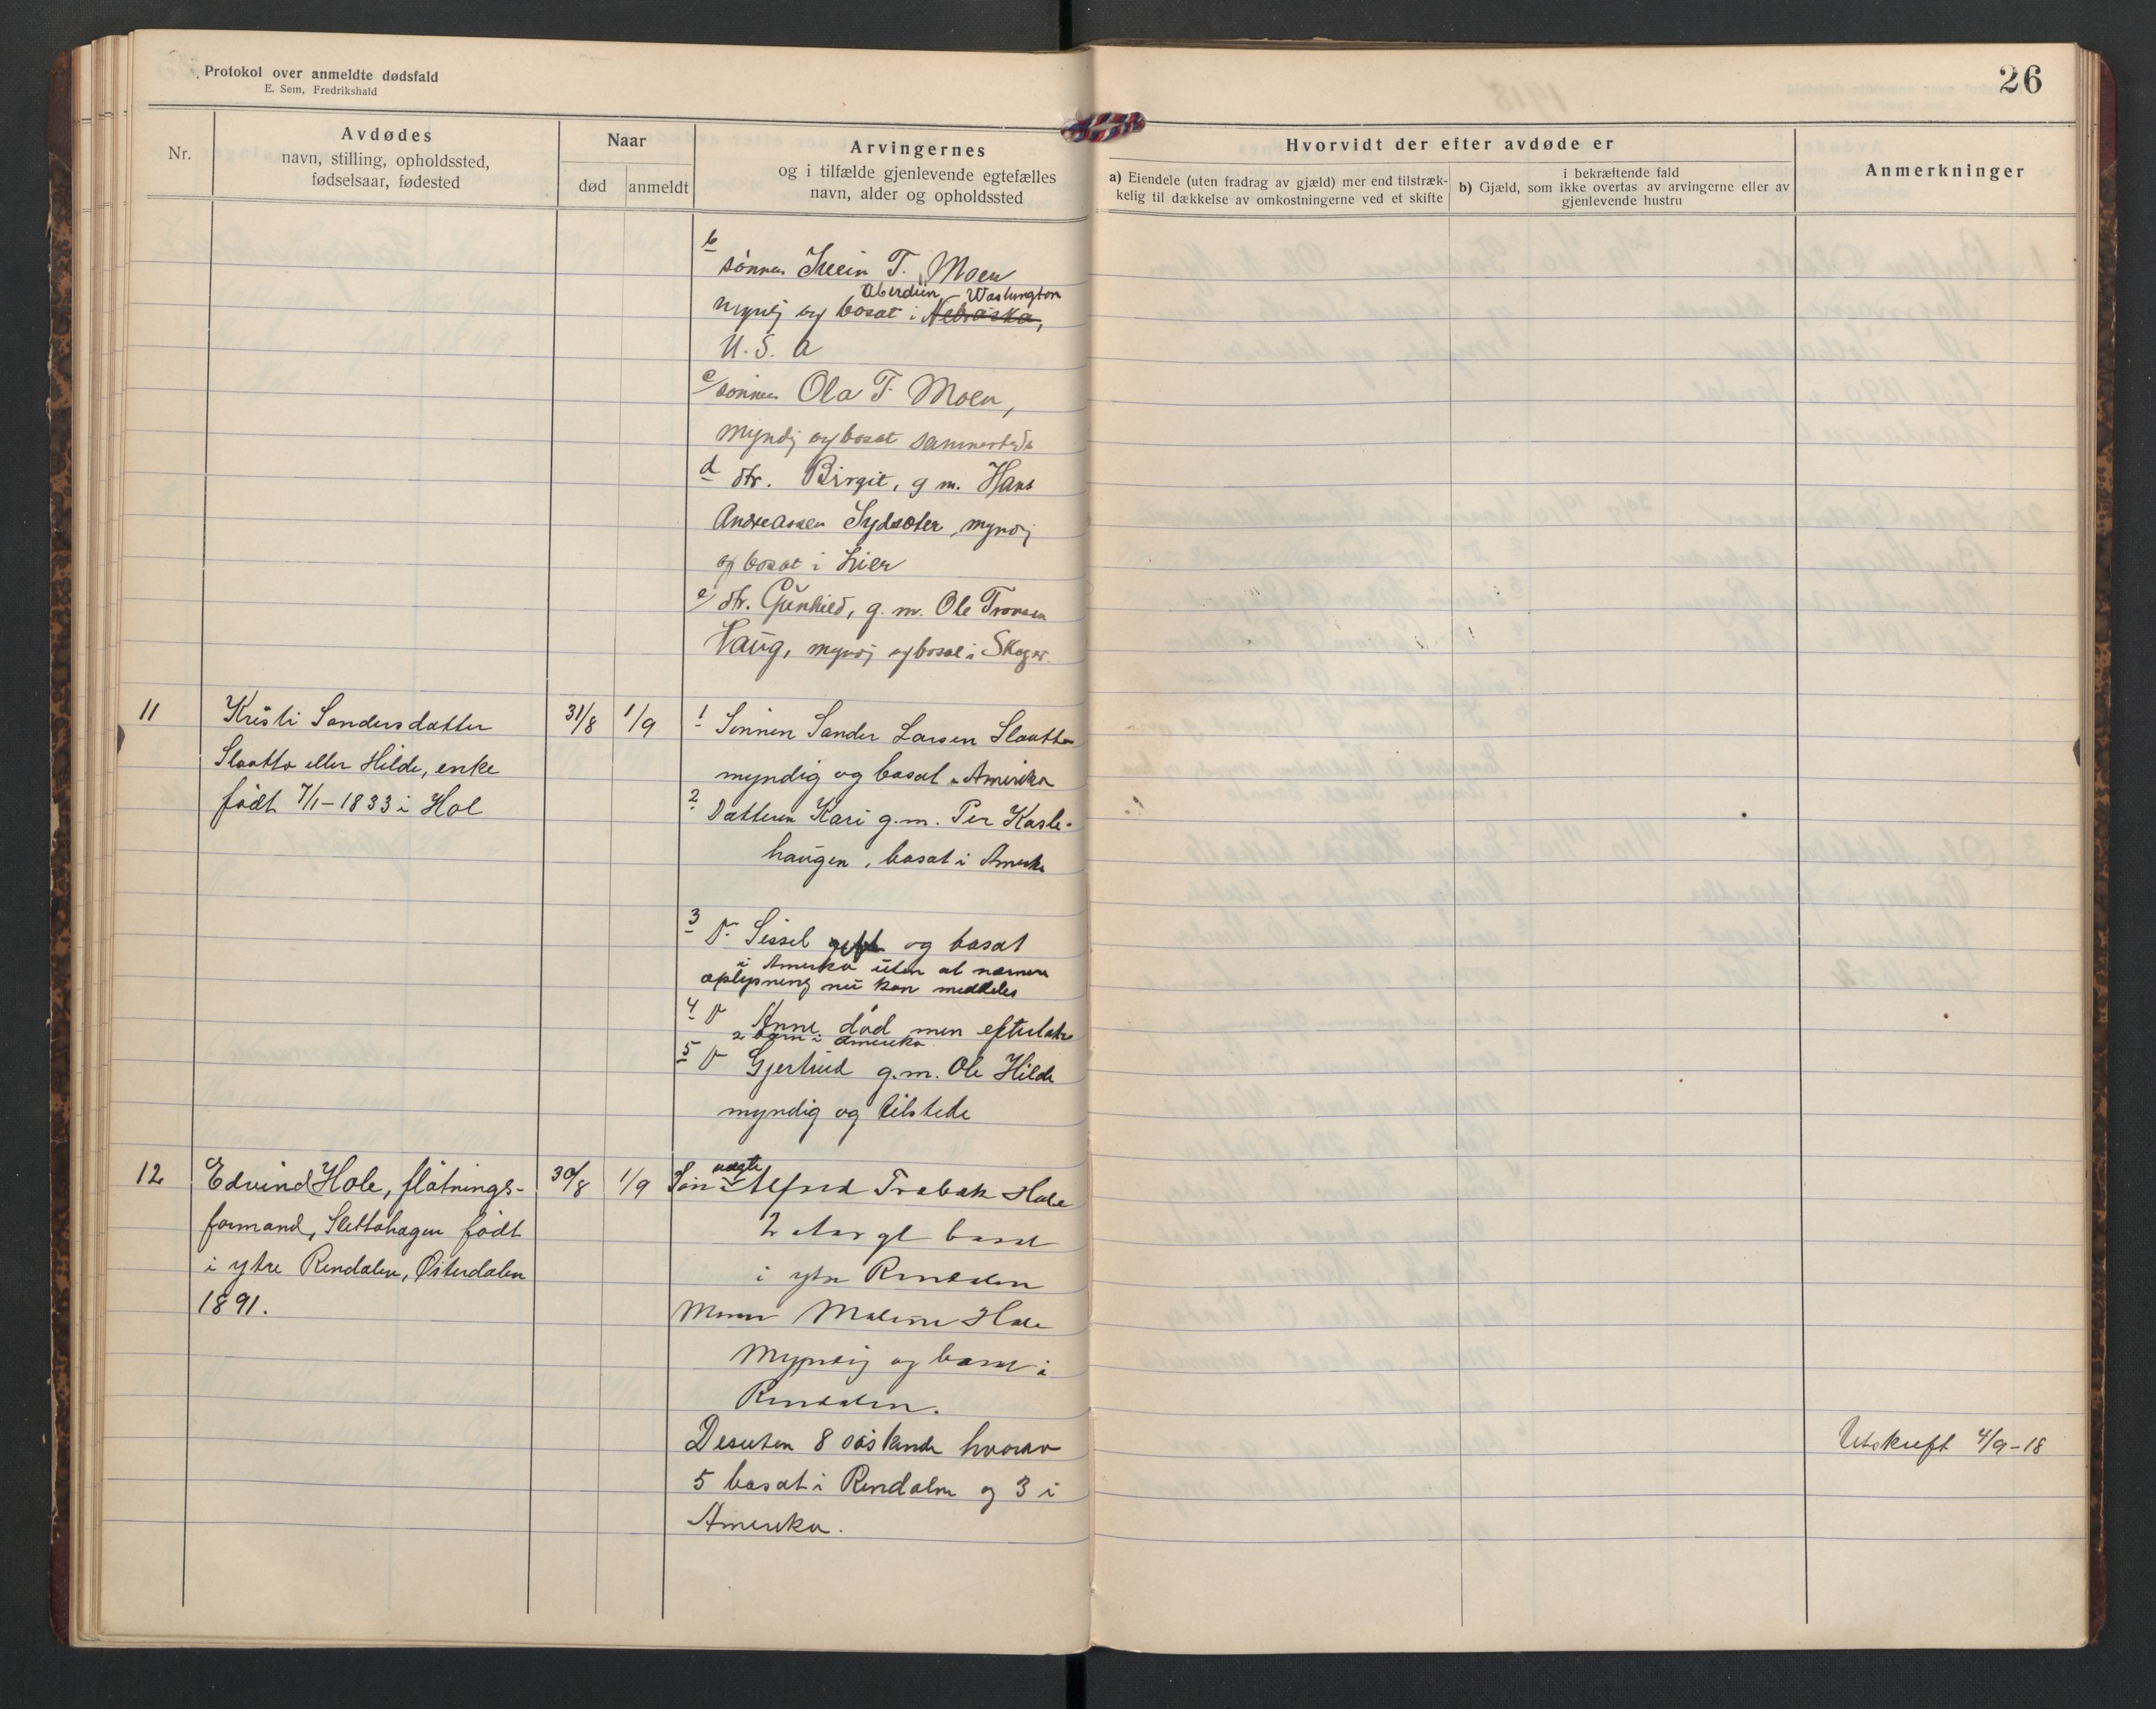 Protokol over anmeldte dødsfald
E. Sem, Fredrikshald
26
Nr.
Avdødes
navn, stilling, opholdssted,
fødselsaar, fødested
Naar
død
anmeldt
Arvingernes
og i tilfælde gjenlevende egtefælles
navn, alder og opholdssted
Hvorvidt der efter avdøde er
a) Eiendele (uten fradrag av gjæld) mer end tilstræk-
kelig til dækkelse av omkostningerne ved et skifte
i bekræftende fald
b) Gjæld, som ikke overtas av arvingerne eller av
gjenlevende hustru
Anmerkninger
b
sønnen Svein T. Moen
Aberdein - Washington
myndj og bosat i Nebraska,
U. S. A
c/ sønnen Ola T. Moen,
myndj og bosat sammesteds
d dtr. Birgit, g m. Hans
Andreassen Sydsæter, myndj
og bosat i Lier
e/ dtr. Gunhild, g. m. Ole Tronsen
Haug, myndj og bosat i Skoger.
11
Kristi Sandersdatter
Slaatto eller Hilde, enke
født 7/1-1833 i Hol
31/8
1/9
1 Sønnen Sander Larsen Slaatto
myndig og bosat i Amerika
2 Datteren Kari g.m. Per Kasle-
haugen, bosat i Amerika
3 D. Sissel gift og bosat
i Amerika uten at nærmere
oplysning nu kan meddeles
4 D Anne død men efterlater
2 barn i Amerika
5 D Gjertrud g.m. Ole Hilde
myndig og tilstede
12
Edvind Hole, fløtnings-
formand, Slettohagen født
i ytre Rendalen, Østerdalen
1891.
30/8
1/9
uægte
Søn Alfred Trabak Hole
2 Aar gl bosat
i ytre Rendalen
Moren Malene Hole
Myndig og bosat i
Rendalen.
Desuten 8 søskende hvorav
5 bosat i Rendalen og 3 i
Amerika.
Utskrift 4/9-18